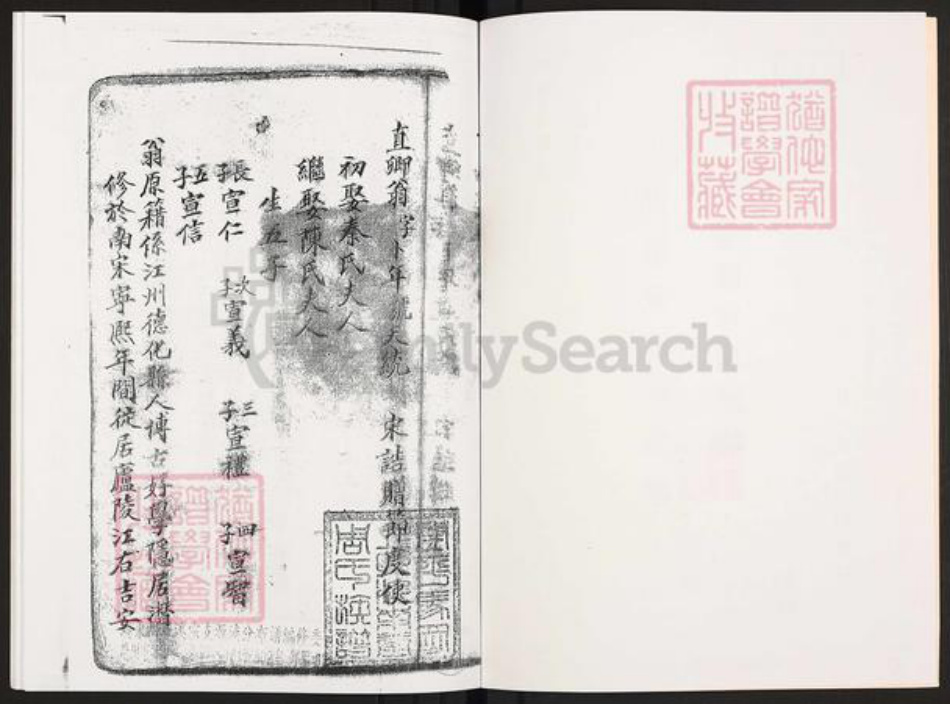 直卿翁字卜年號大統　宋誥贈節度使
初娶秦氏夫人
繼娶陳氏夫人
生五子
長子宣仁　次子宣義　三子宣禮　四子宣智
五子宣信
翁原籍係江州德化縣人博古好學隱居潛
修於南宋寧熙年間徙居廬陵江右吉安
周氏族譜
譜學會
收藏
FamilySearch